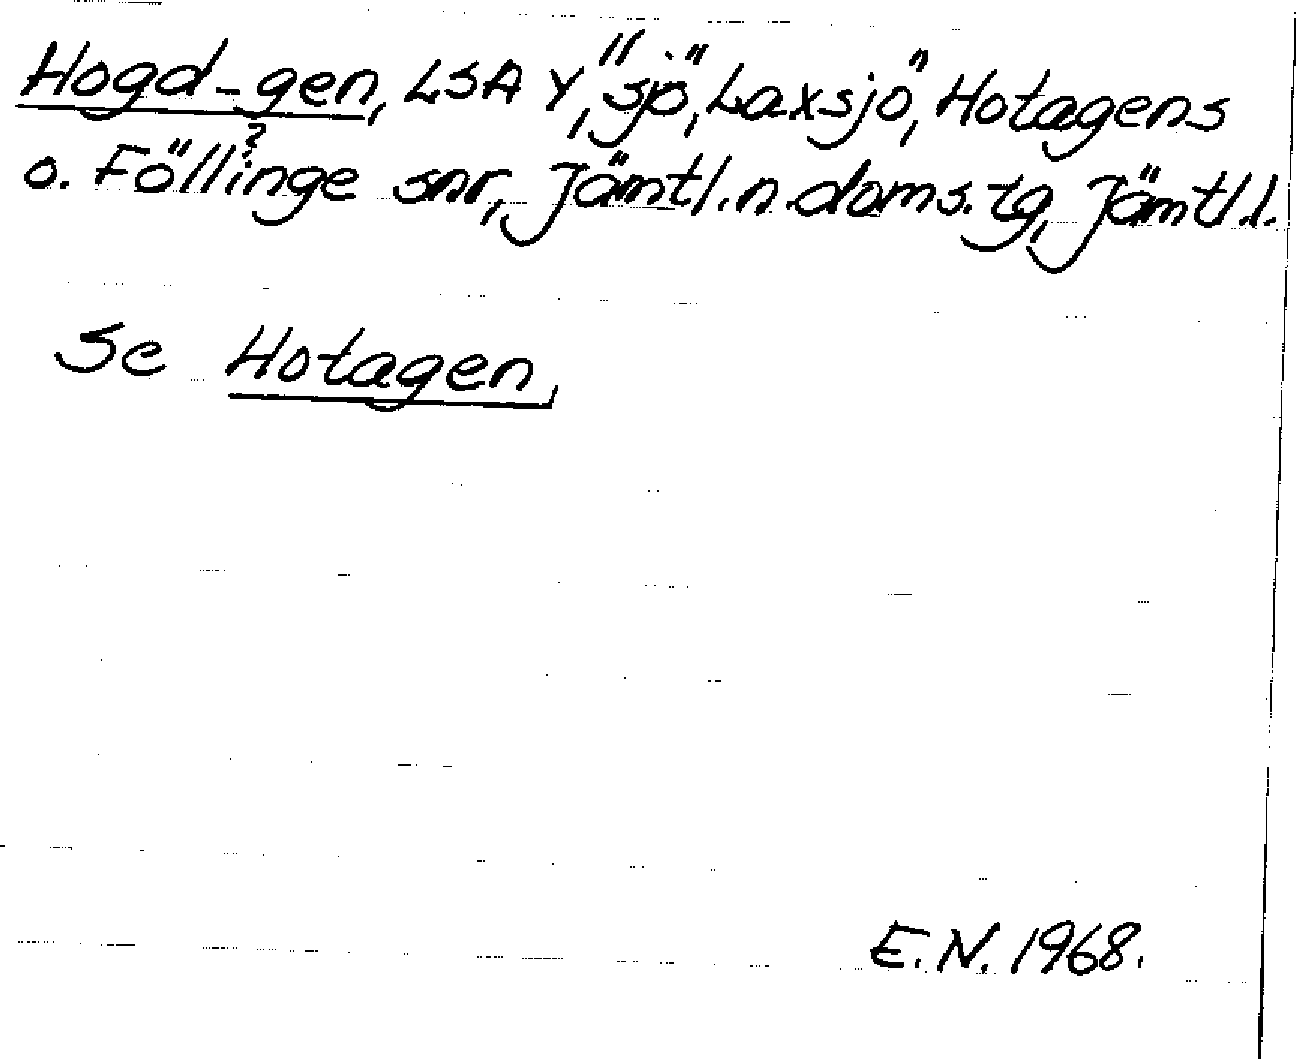 Hogd-gen, LSA Y, "sjö", Laxsjö, Hotagens
o. Föllinge snr, Jämtl. n. doms. tg, Jämtl. l.
Se Hotagen,
E.N. 1968.